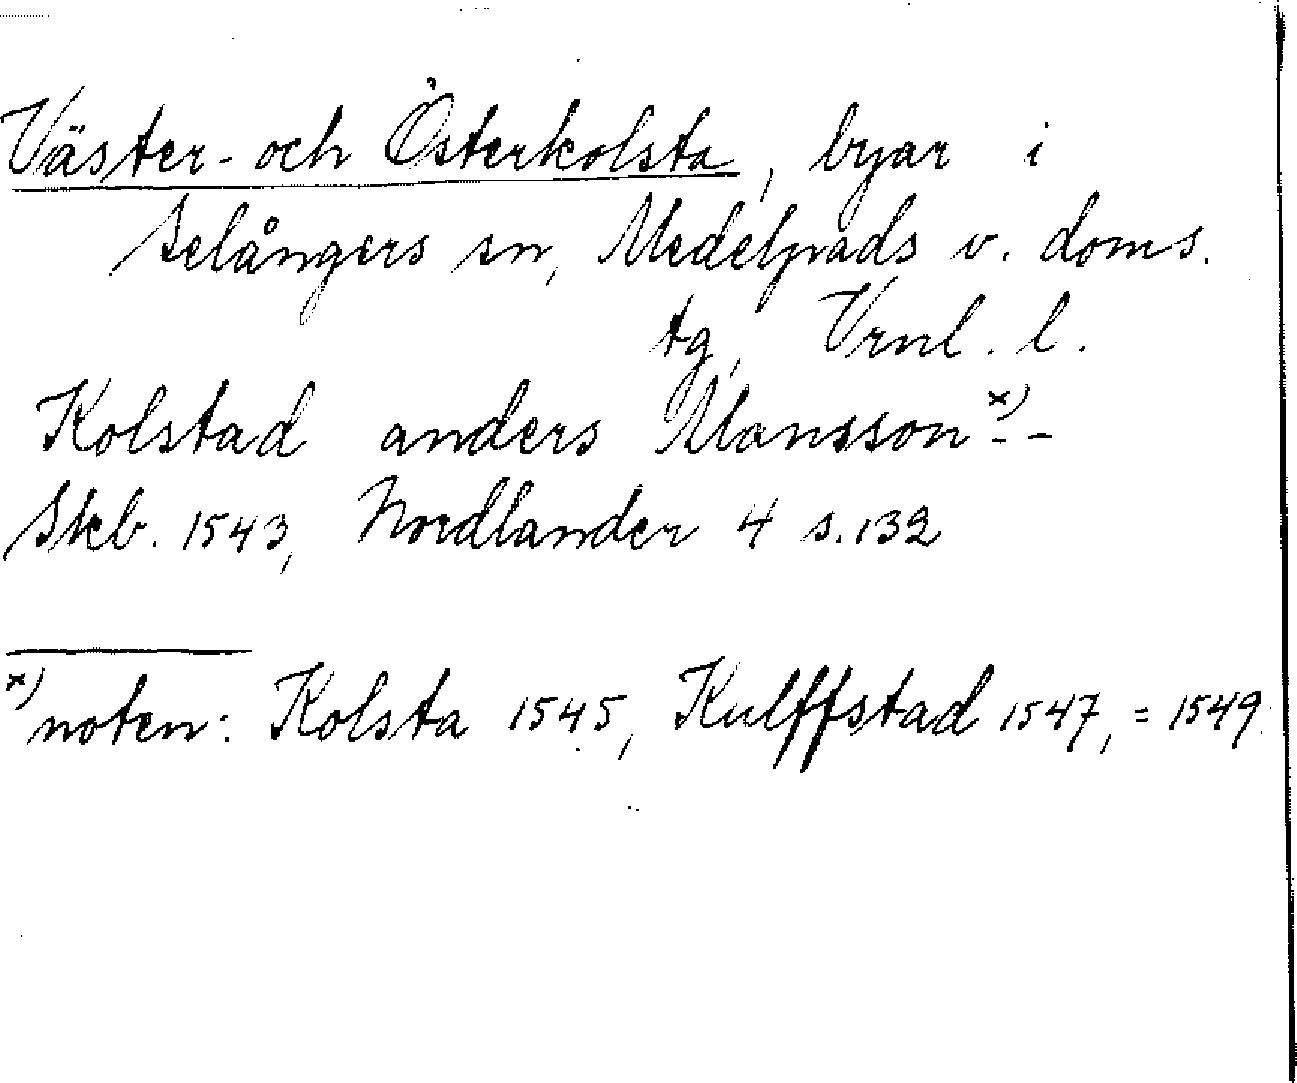 Väster- och Österkolsta, byar i
Selångers sn, Medelpads v. doms.
tg, Vrnl. l.
Kolstad anders Mansson x) - -
Skb. 1543, Nordlander 4 s. 132
x) noten: Kolsta 1545, Kulffstad 1547, = 1549.